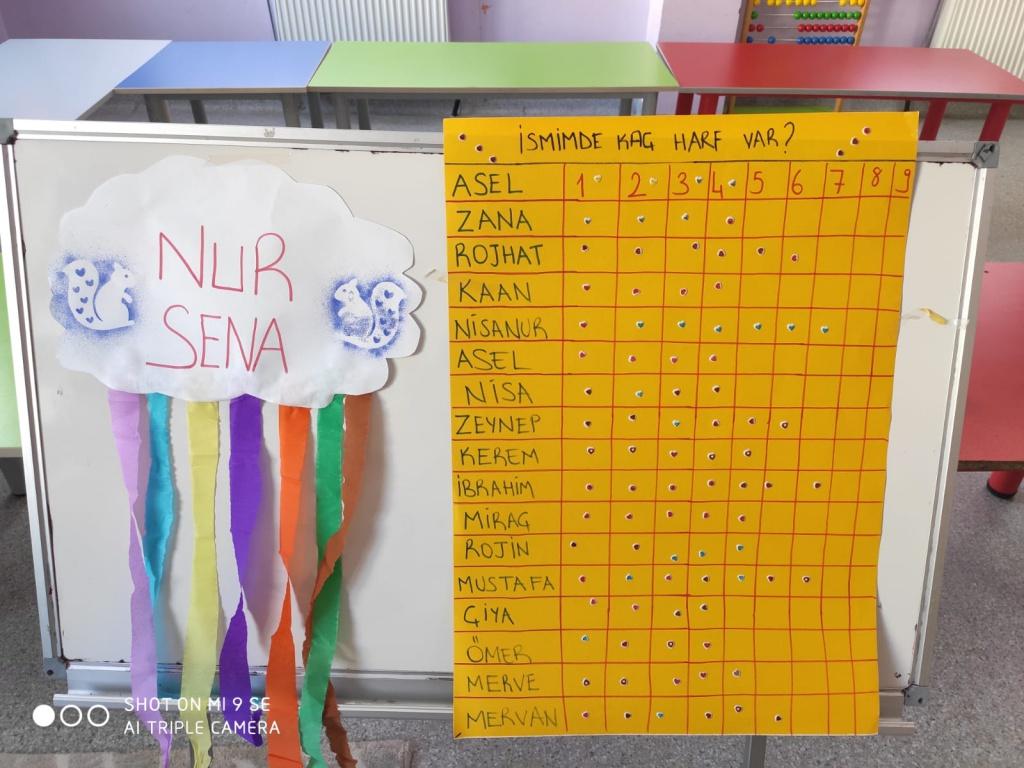 NUR
SENA
İSMİMDE KAÇ HARF VAR?
ASEL 1 2 3 4 5 6 7 8 9
ZANA
ROJHAT
KAAN
NİSANUR
ASEL
NİSA
ZEYNEP
KEREM
İBRAHİM
MİRAÇ
ROJİN
MUSTAFA
ÇİYA
ÖMER
MERVE
MERVAN
SHOT ON MI 9 SE
AI TRIPLE CAMERA